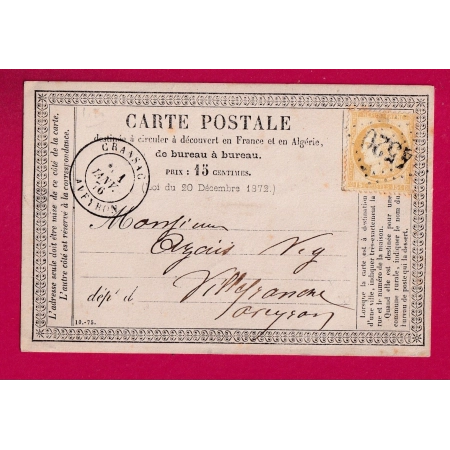 CARTE POSTALE
destinée à circuler à découvert en France et en Algérie,
de bureau à bureau.
PRIX : 15 CENTIMES.
(Loi du 20 Décembre 1872.)
CRANSAC
1
JANV.
76
AVEYRON
Monsieur
dépt d
Villefranche
Aveyron
L'adresse seule doit être mise de ce côté de la carte.
L'autre côté est réservé à la correspondance.
Lorsque la carte est à destination
d'une ville, indiquer très-exactement la
rue et le numéro de la maison.
Quand elle est destinée pour une
commune rurale, indiquer le nom du
bureau de poste qui la dessert.
12.-75.